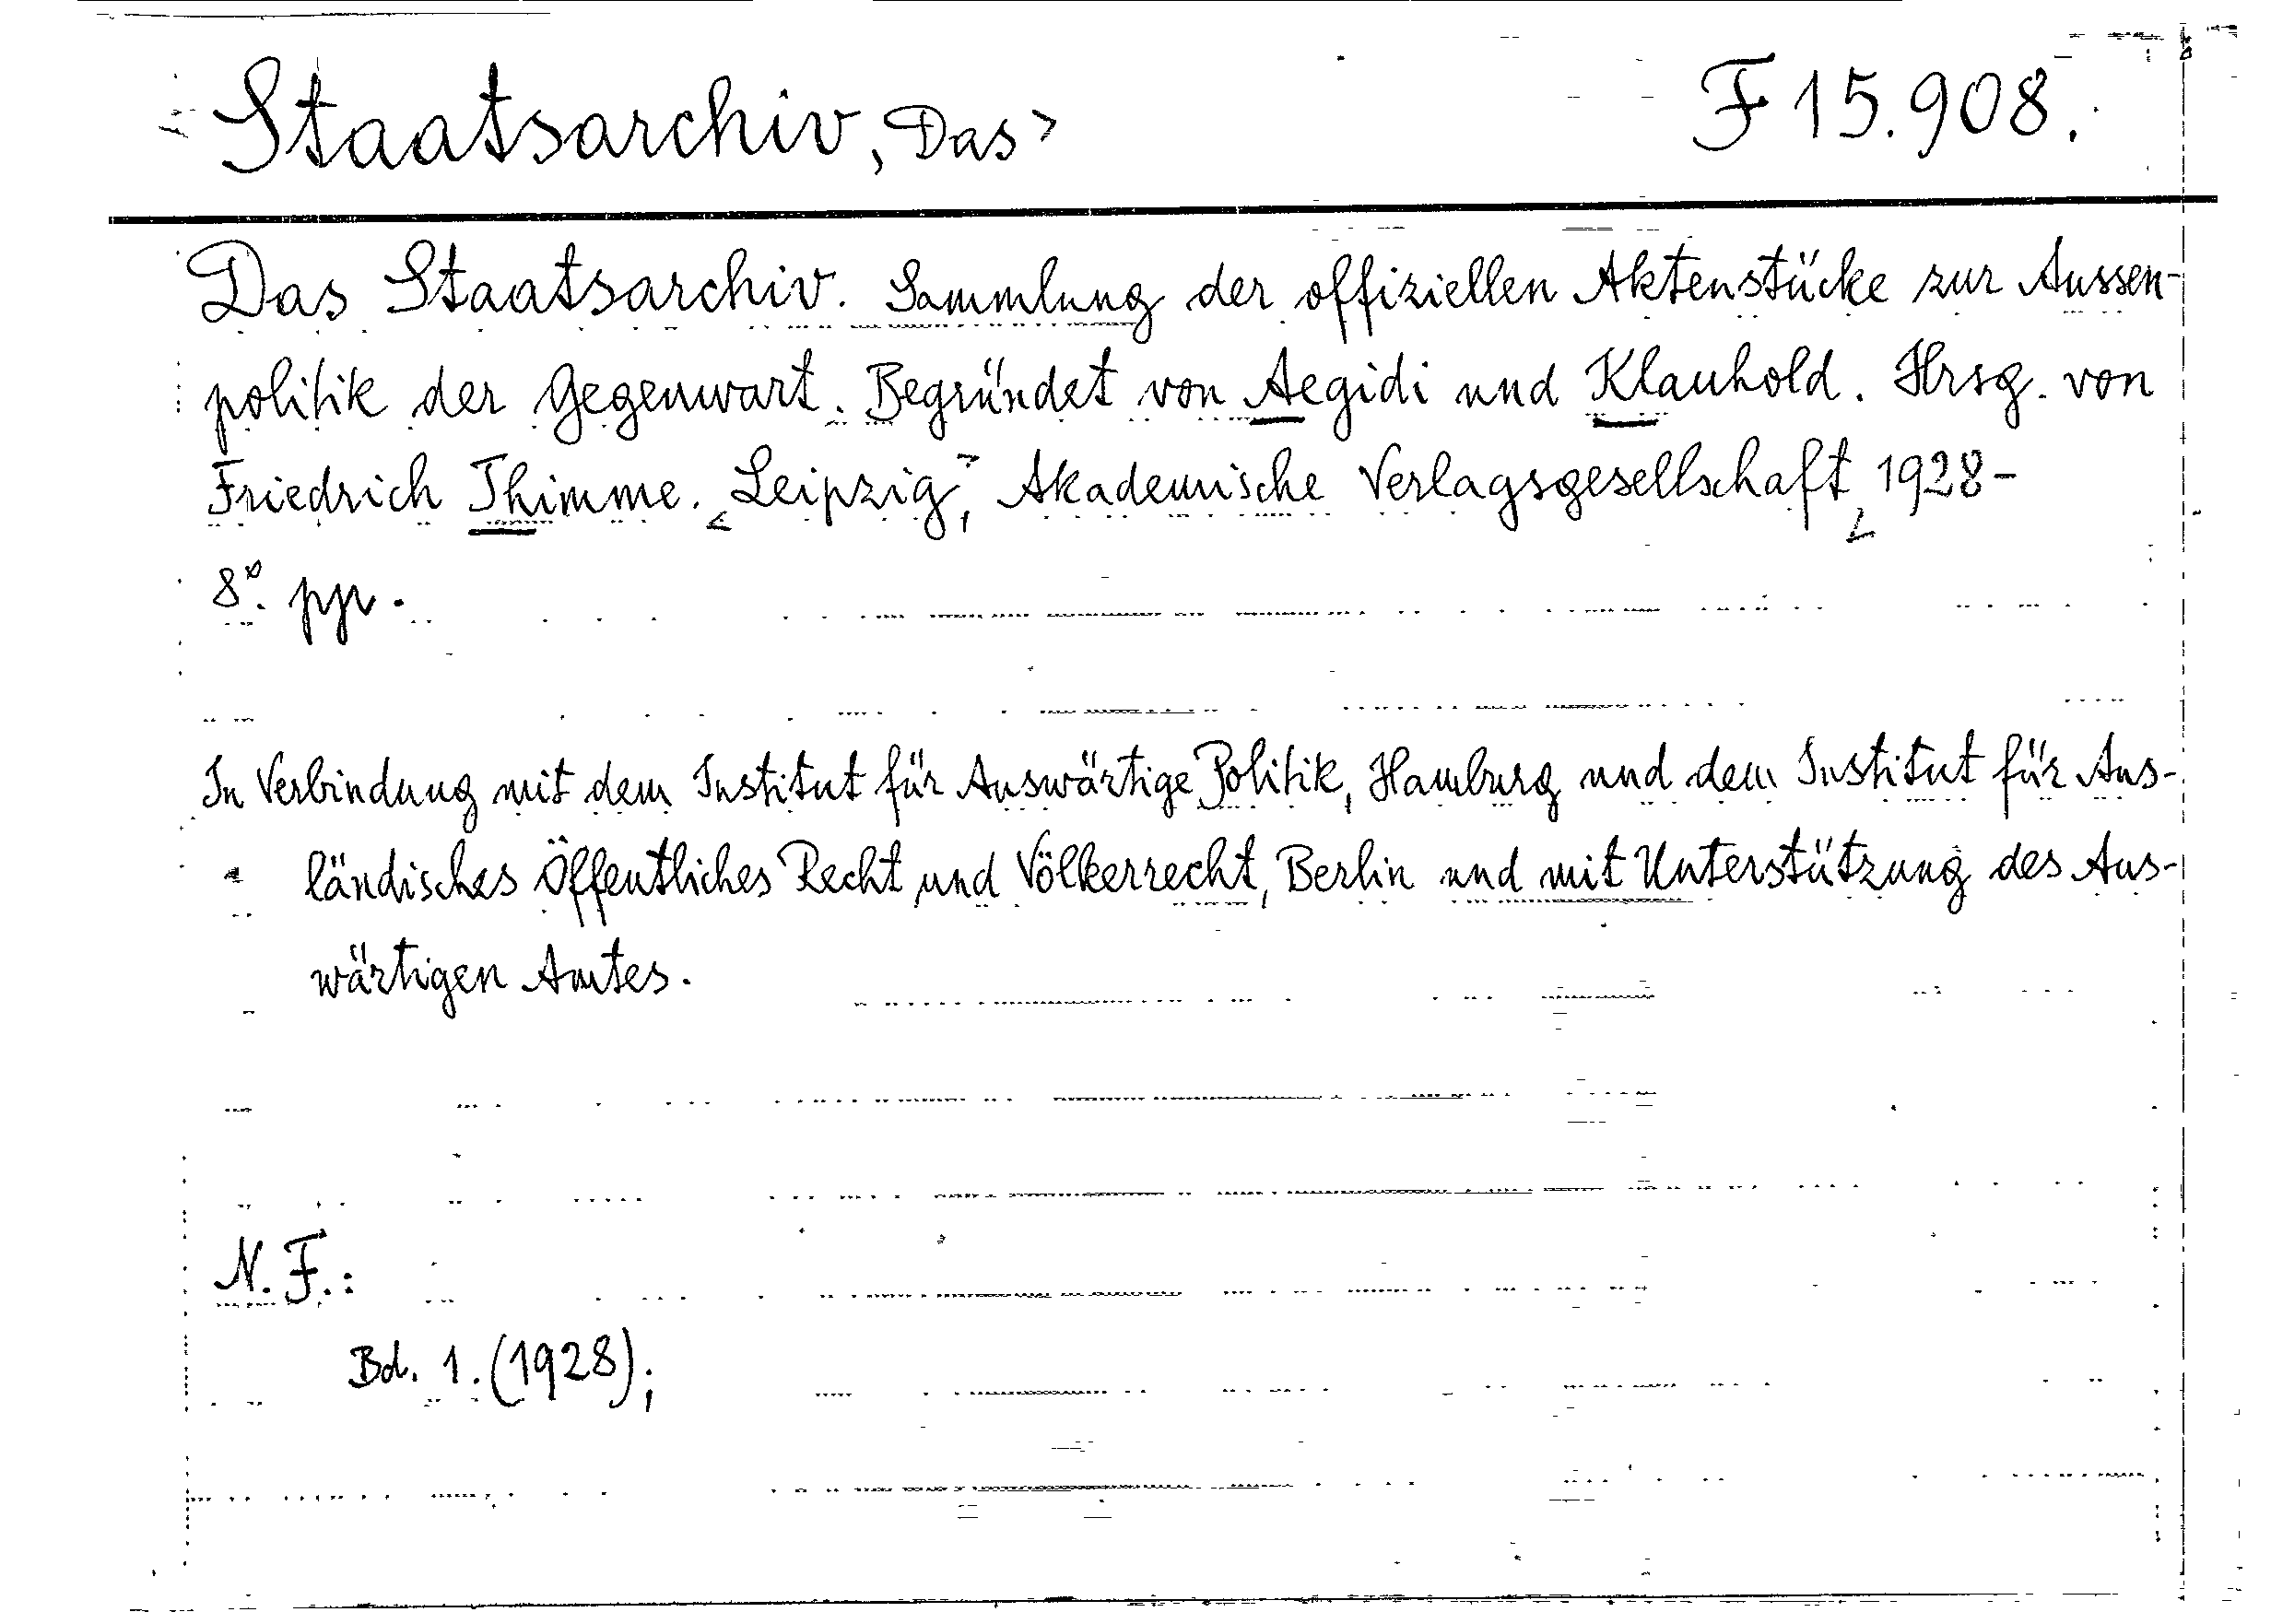 Staatsarchiv, Das> F 15.908.
Das Staatsarchiv. Sammlung der offiziellen Aktenstücke zur Aussen-
politik der Gegenwart. Begründet von Aegidi und Klauhold. Hrsg. von
Friedrich Thimme. <Leipzig>, Akademische Verlagsgesellschaft, 1928-
8°. pp.
In Verbindung mit dem Institut für Auswärtige Politik, Hamburg und dem Institut für Aus-
ländisches Öffentliches Recht und Völkerrecht, Berlin und mit Unterstützung des Aus-
wärtigen Amtes.
N. F.:
Bd. 1. (1928);